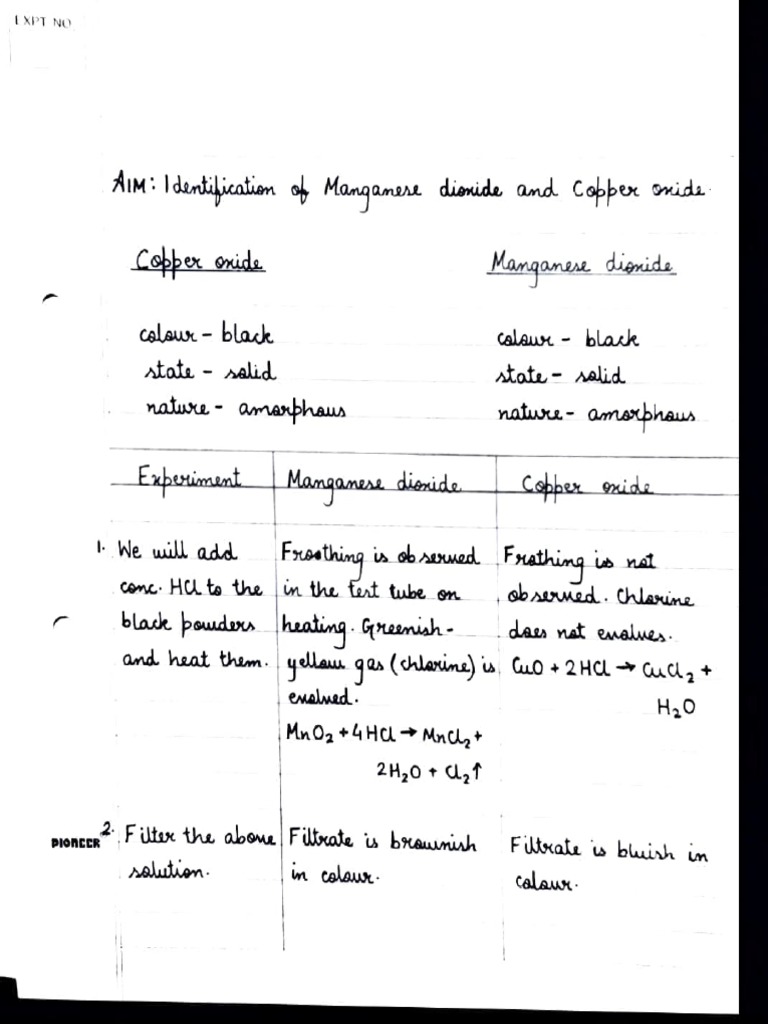 EXPT NO
AIM: Identification of Manganese dioxide and Copper oxide.
Copper oxide
Manganese dioxide
colour - black
state - solid
nature - amorphous
colour - black
state - solid
nature - amorphous
Experiment
Manganese dioxide
Copper oxide
1. We will add
conc. HCl to the
black powders
and heat them.
Froothing is observed
in the test tube on
heating. Greenish-
yellow gas (chlorine) is
evolved.
MnO₂ + 4HCl → MnCl₂ +
2H₂O + Cl₂↑
Frothing is not
observed. Chlorine
does not evolves.
CuO + 2HCl → CuCl₂ +
H₂O
2. Filter the above
solution.
Filtrate is brownish
in colour.
Filtrate is bluish in
colour.
PIONEER